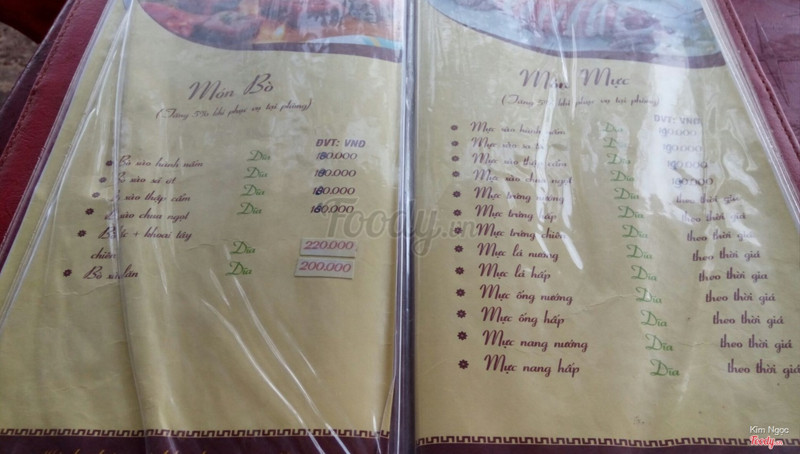 Món Bò
(Tăng 5% khi phục vụ tại phòng)
ĐVT: VND
Bò xào hành nấm Dĩa 180.000
xào sả ớt Dĩa 180.000
xào thập cẩm Dĩa 180.000
xào chua ngọt Dĩa 180.000
+ khoai tây
chiên Dĩa 220.000
Bò Dĩa 200.000
Món Mực
(Tăng 5% khi phục vụ tại phòng)
ĐVT: VND
Mực xào hành nấm Dĩa 190.000
Mực xào sa tế Dĩa 190.000
Mực xào thập cẩm Dĩa 190.000
Mực xào chua ngọt Dĩa 190.000
Mực trứng nướng Dĩa theo thời giá
Mực trứng hấp Dĩa theo thời giá
Mực trứng chiên Dĩa theo thời giá
Mực lá nướng Dĩa theo thời giá
Mực lá hấp Dĩa theo thời giá
Mực ống nướng Dĩa theo thời giá
Mực ống hấp Dĩa theo thời giá
Mực nang nướng Dĩa theo thời giá
Mực nang hấp Dĩa theo thời giá
Foody.vn
Kim Ngọc
Foody.vn